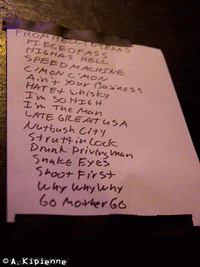 FROM HELL TO TEXAS
PIECE OF ASS
HIGH AS HELL
SPEED MACHINE
C'MON C'MON
Ain't Your Business
HATE & Whisky
I'm SO HIGH
I'm The Man
LATE GREAT USA
Nutbush City
Struttin Cock
Drunk Driving man
Snake Eyes
Shoot First
Why Why Why
Go Mother Go
© A. Kipienne